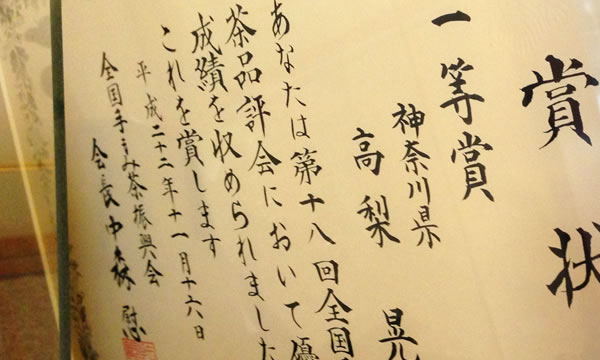 賞状
一等賞
神奈川県
高梨 晃
あなたは第十八回全国
茶品評会において優
成績を収められました
これを賞します
平成二十二年十一月十六日
全国手もみ茶振興会
会長中森慰